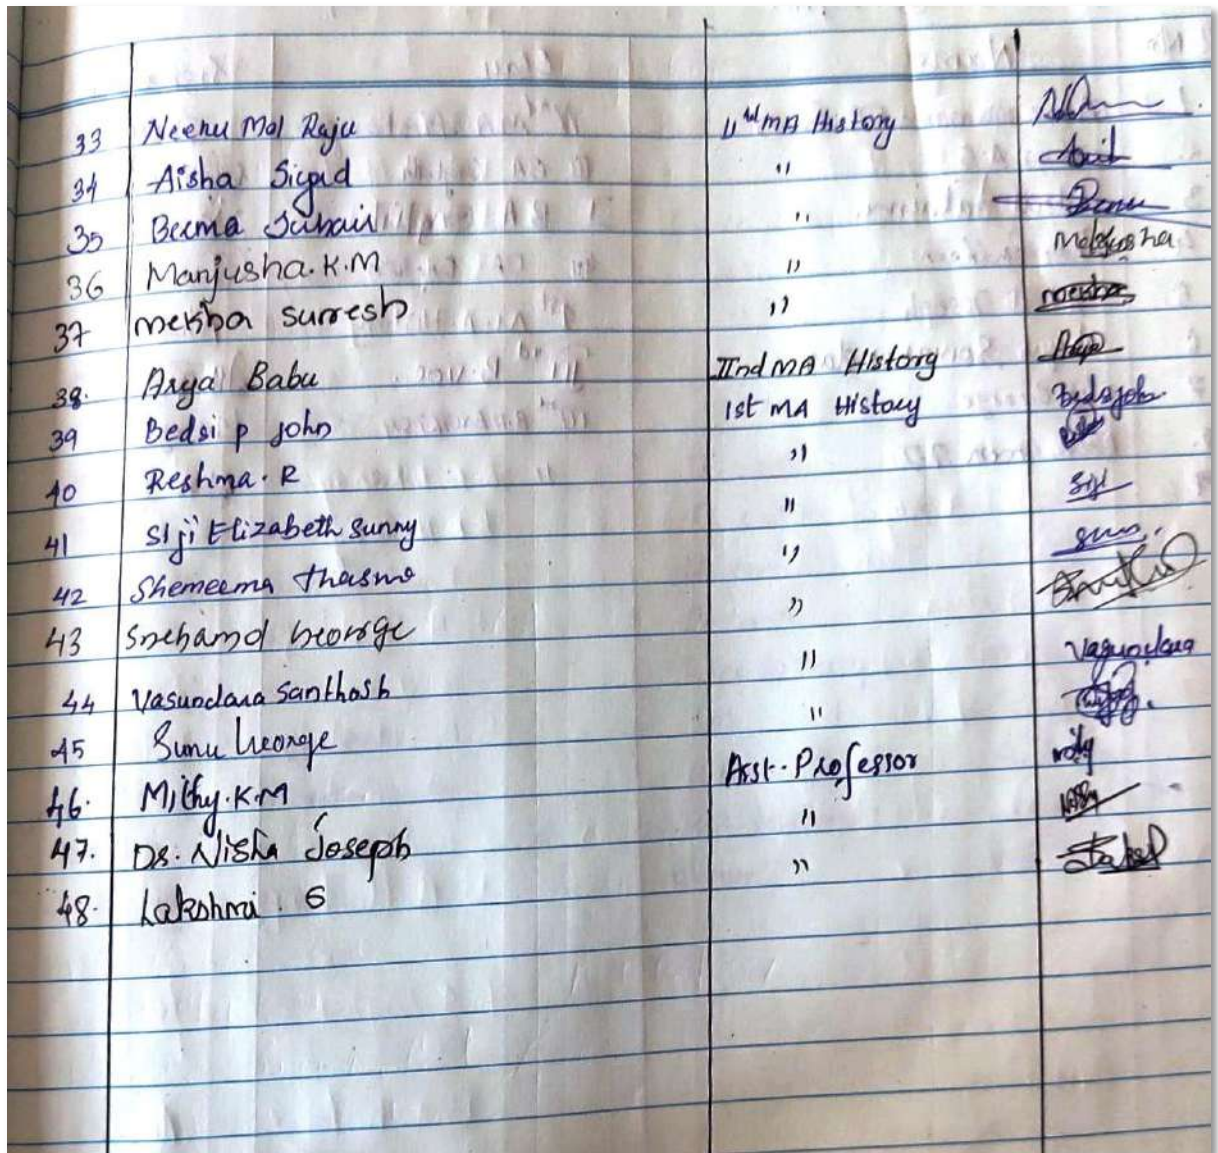 33 Neenu Mol Raju IInd MA History
34 Aisha Siyad "
35 Beema Subair "
36 Manjusha.K.M " Manjusha
37 mekha surresh " mekha
38. Arya Babu IInd MA History Arya
39 Bedsi p john 1st MA History Bedsijohn
40 Reshma. R "
41 Siji Elizabeth Sunny " Siji
42 Shemeema thasni "
43 Snehamol George "
44 Vasundara Santhosh " Vasundara
45 Sunu George "
46. Mithy.K.M Asst. Professor
47. Dr. Nisha Joseph "
48. Lakshmi. G "